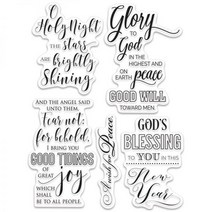 O
Holy Night
THE
stars
ARE
brightly
Shining
Glory
TO
God
IN THE
HIGHEST AND
ON
EARTH peace
GOOD WILL
TOWARD MEN.
AND THE ANGEL SAID UNTO THEM,
Fear not:
for behold,
I BRING YOU
GOOD TIDINGS
OF
GREAT joy
WHICH
SHALL BE
TO ALL PEOPLE.
Peace,
GOD'S
BLESSING
TO YOU IN THIS
New Year